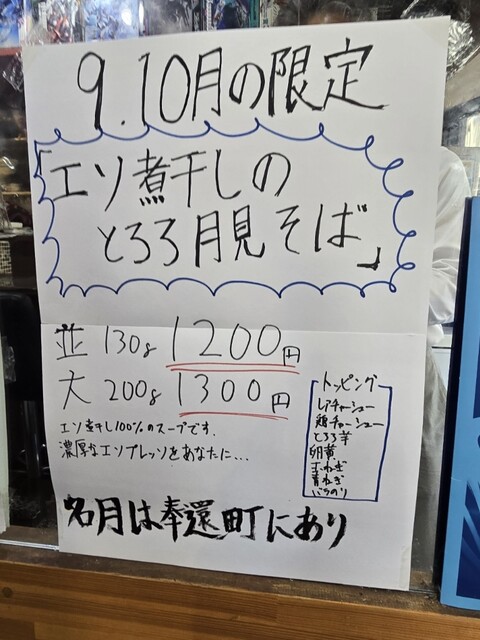 9.10月の限定
「エソ煮干しの
とろろ月見そば」
並 130g 1200円
大 200g 1300円
エソ煮干し100%のスープです。
濃厚なエソプレッソをあなたに…
トッピング
レアチャーシュー
鶏チャーシュー
とろろ芋
卵黄
玉ねぎ
青ねぎ
バラのり
名月は奉還町にあり